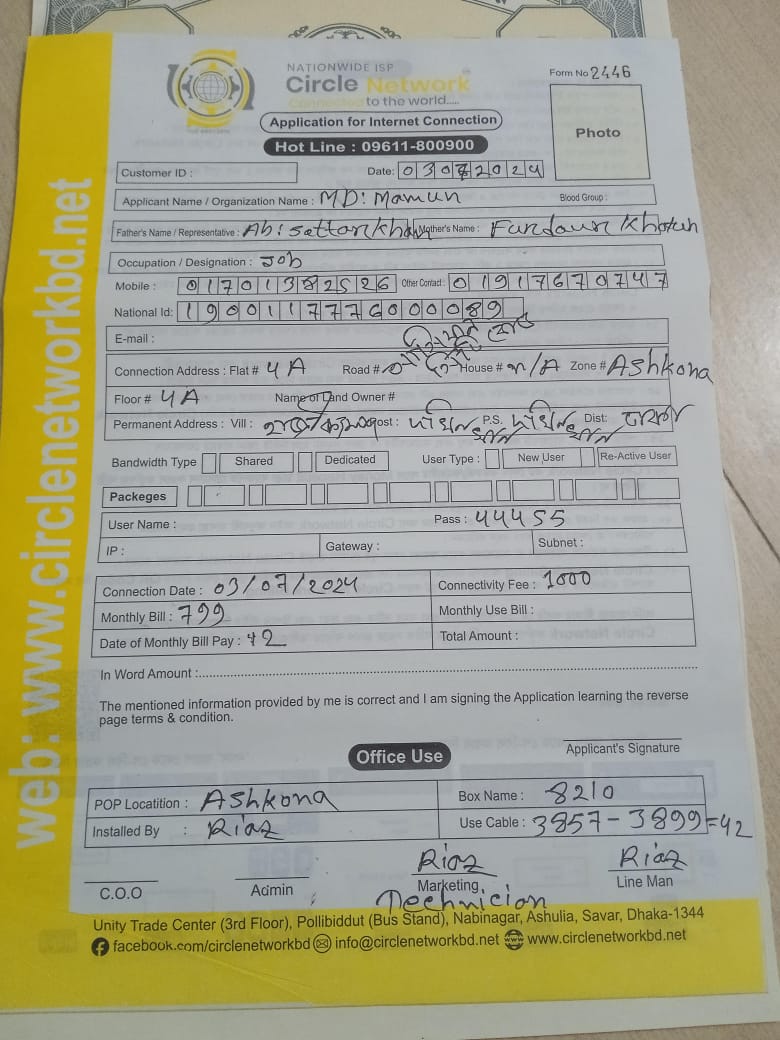 NATIONWIDE ISP
Circle Network
Connected to the world.....
Form No 2446
Application for Internet Connection
Hot Line : 09611-800900
Photo
Customer ID :
Date: 03072024
Applicant Name / Organization Name : MD: Mamun Blood Group :
Father's Name / Representative : Ab: Sattar khan Mother's Name : Khatun
Occupation / Designation : Job
Mobile : 01701382526 Other Contact : 01917670747
National Id: 1900117776000089
E-mail :
Connection Address : Flat # 4A Road # House # N/A Zone # Ashkona
Floor # 4A Name of Land Owner #
Permanent Address : Vill : Post : P.S. Dist:
Bandwidth Type Shared Dedicated User Type : New User Re-Active User
Packeges
User Name : Pass : 44455
IP : Gateway : Subnet :
Connection Date : 03/07/2024 Connectivity Fee : 1000
Monthly Bill : 799 Monthly Use Bill :
Date of Monthly Bill Pay : 42 Total Amount :
In Word Amount :....................
The mentioned information provided by me is correct and I am signing the Application learning the reverse
page terms & condition.
Applicant's Signature
Office Use
POP Locatition : Ashkona Box Name : 8210
Installed By : Riaz Use Cable : 3857-3899=42
Riaz Riaz
C.O.O Admin Marketing Line Man
Technician
Unity Trade Center (3rd Floor), Pollibiddut (Bus Stand), Nabinagar, Ashulia, Savar, Dhaka-1344
facebook.com/circlenetworkbd info@circlenetworkbd.net www.circlenetworkbd.net
web: www.circlenetworkbd.net